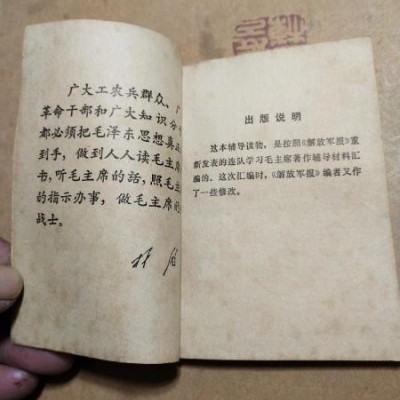 广大工农兵群众、广
革命干部和广大知识分
都必须把毛泽东思想真正
到手，做到人人读毛主席
书，听毛主席的話，照毛主席
的指示办事，做毛主席的
战士。
出版说明
这本辅导读物，是按照《解放军报》重
新发表的连队学习毛主席著作辅导材料汇
编的。这次汇编时，《解放军报》编者又作
了一些修改。